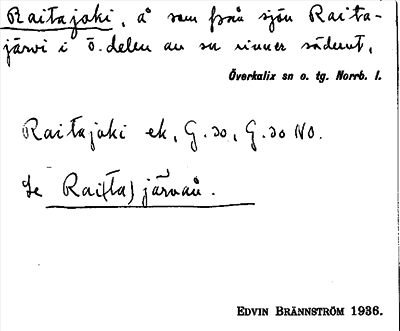 Raitajoki, å som från sjön Raita-
järvi i ö. delen av sn rinner söderut.
Överkalix sn o. tg. Norrb. l.
Raitajoki ek, G. 30, G. 30 NO.
Se Rai(ta)järvån.
EDVIN BRÄNNSTRÖM 1936.